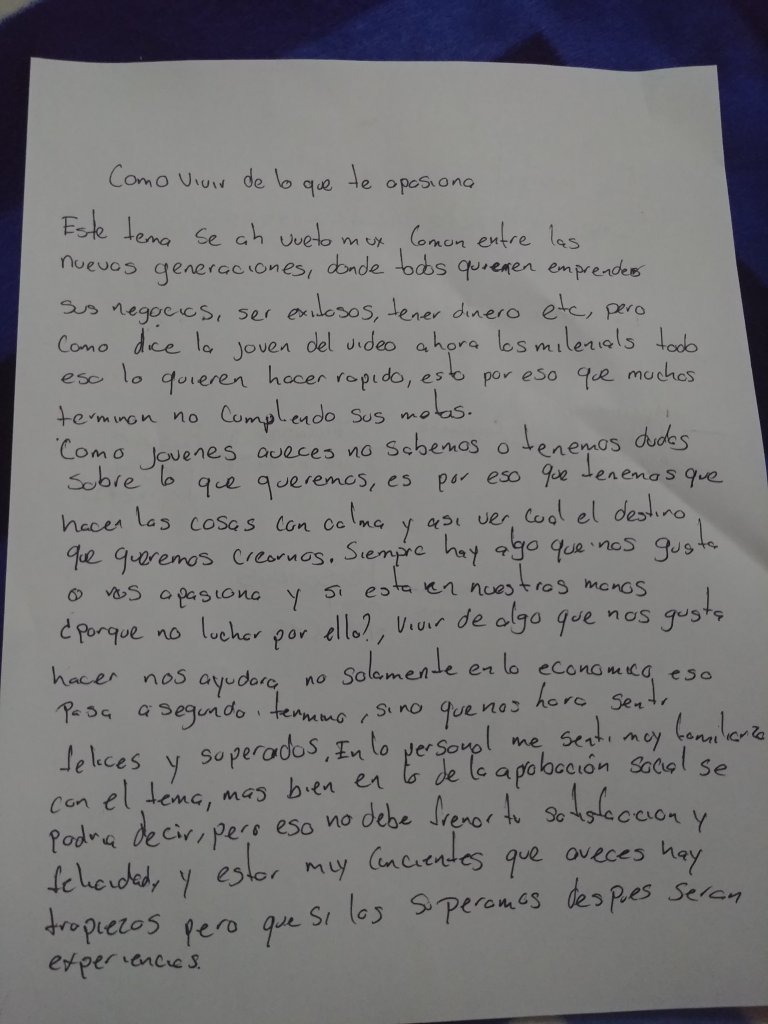 Como vivir de lo que te apasiona
Este tema se ah vueto muy comun entre las
nuevas generaciones, donde todos quieren emprender
sus negocios, ser exitosos, tener dinero etc, pero
como dice la joven del video ahora los milenials todo
eso lo quieren hacer rapido, esto por eso que muchos
terminan no cumpliendo sus metas.
Como jovenes aveces no sabemos o tenemos dudas
sobre lo que queremos, es por eso que tenemos que
hacer las cosas con calma y asi ver cual el destino
que queremos crearnos. Siempre hay algo que nos gusta
o nos apasiona y si esta en nuestras manos
¿porque no luchar por ello?, vivir de algo que nos gusta
hacer nos ayudara no solamente en lo economico, eso
pasa a segundo termino, sino que nos hara sentir
felices y superados. En lo personal me senti muy familiariza
con el tema, mas bien en lo de la apobación social se
podria decir, pero eso no debe frenar tu satisfaccion y
felicidad, y estar muy concientes que aveces hay
tropiezos pero que si los superamos despues seran
experiencias.